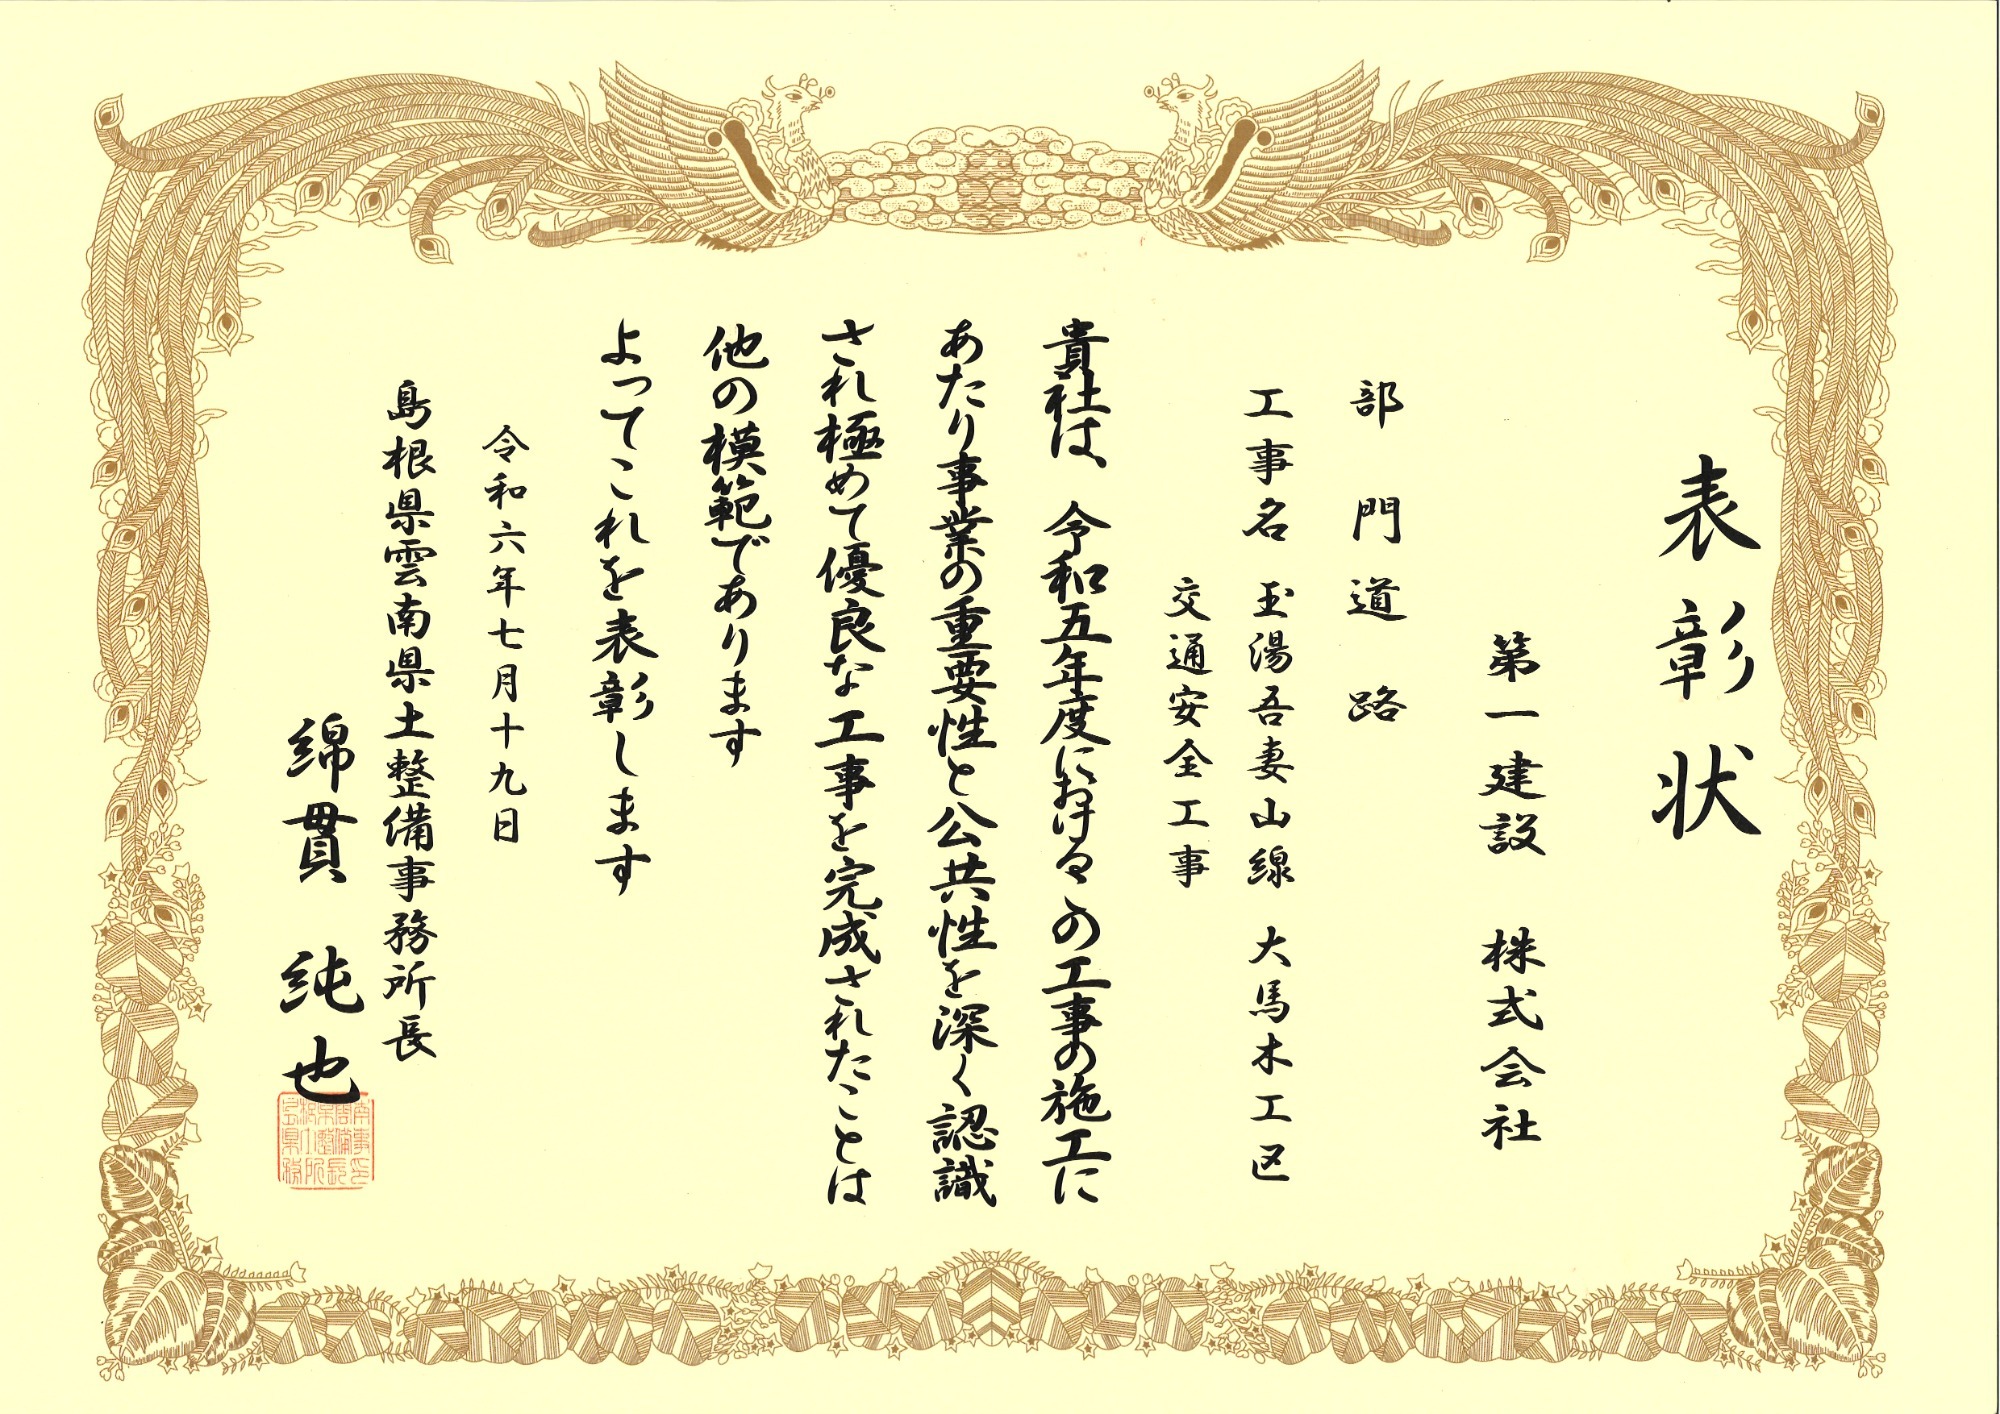 表彰状
第一建設　株式会社
部門　道路
工事名　玉湯吾妻山線　大馬木工区
交通安全工事
貴社は、令和五年度における の工事の施工に
あたり事業の重要性と公共性を深く認識
され極めて優良な工事を完成されたことは
他の模範であります
よってこれを表彰します
令和六年七月十九日
島根県雲南県土整備事務所長
綿貫　純也